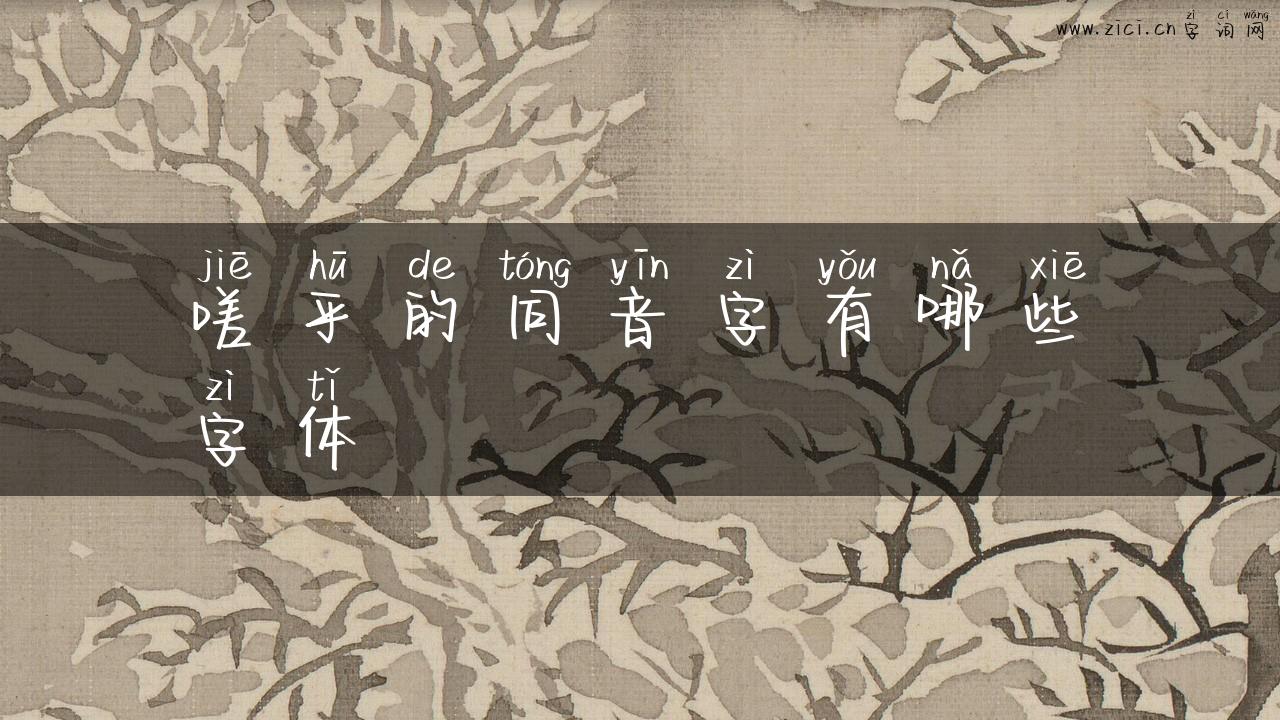 zì cí wǎng
www.zici.cn 字 词 网
jiē hū de tóng yīn zì yǒu nǎ xiē
嗟 乎 的 同 音 字 有 哪 些
zì tǐ
字 体